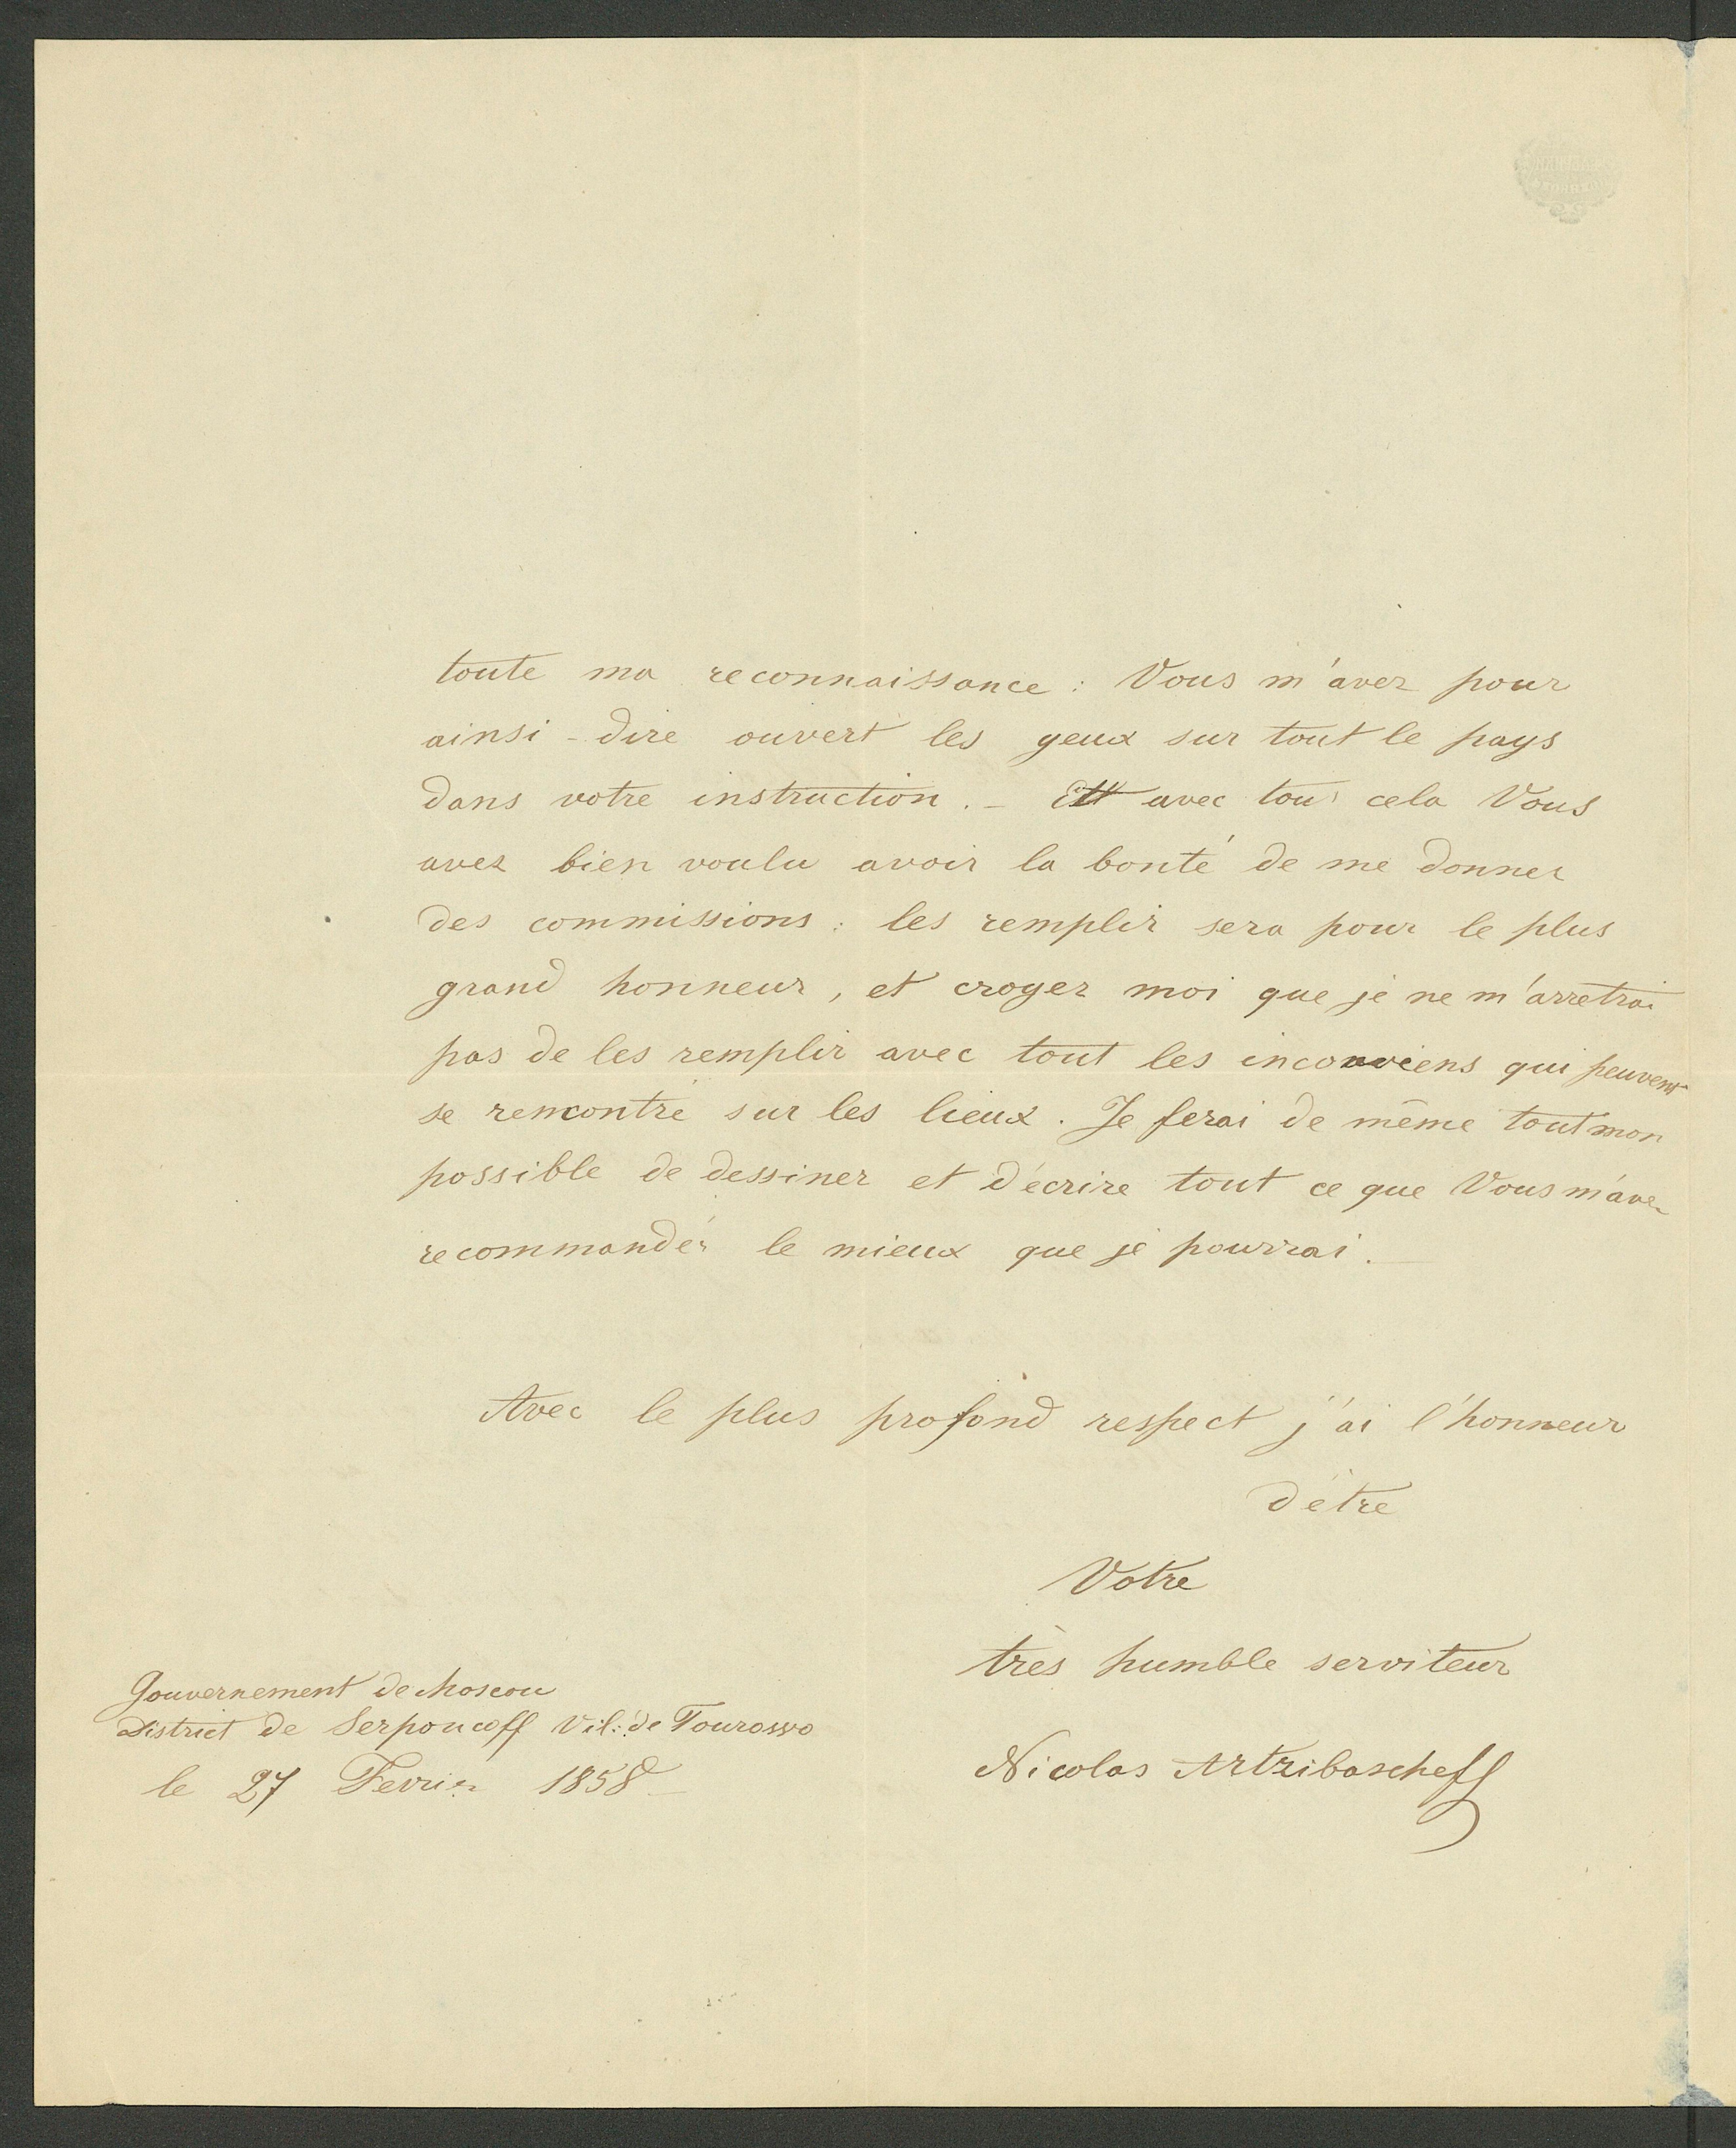 toute ma reconnaissance: Vous m'avez pour
ainsi-dire ouvert les yeux sur tout le pays
dans votre instruction. - Et avec tout cela Vous
avez bien voulu avoir la bonté de me donner
des commissions: les remplir sera pour le plus
grand honneur, et croyez moi que je ne m'arretrai
pas de les remplir avec tout les inconviens qui peuvent
se rencontré sur les lieux. Je ferai de même tout mon
possible de dessiner et décrire tout ce que Vous m'avez
recommandér le mieux que je pourrai. -
Avec le plus profond respect j'ai l'honneur
d'être
Votre
très humble serviteur
Nicolas Artzibascheff
Gouvernement de Moscou
District de Serpoucoff Vil: de Tourowo
le 27 Fevrier 1858